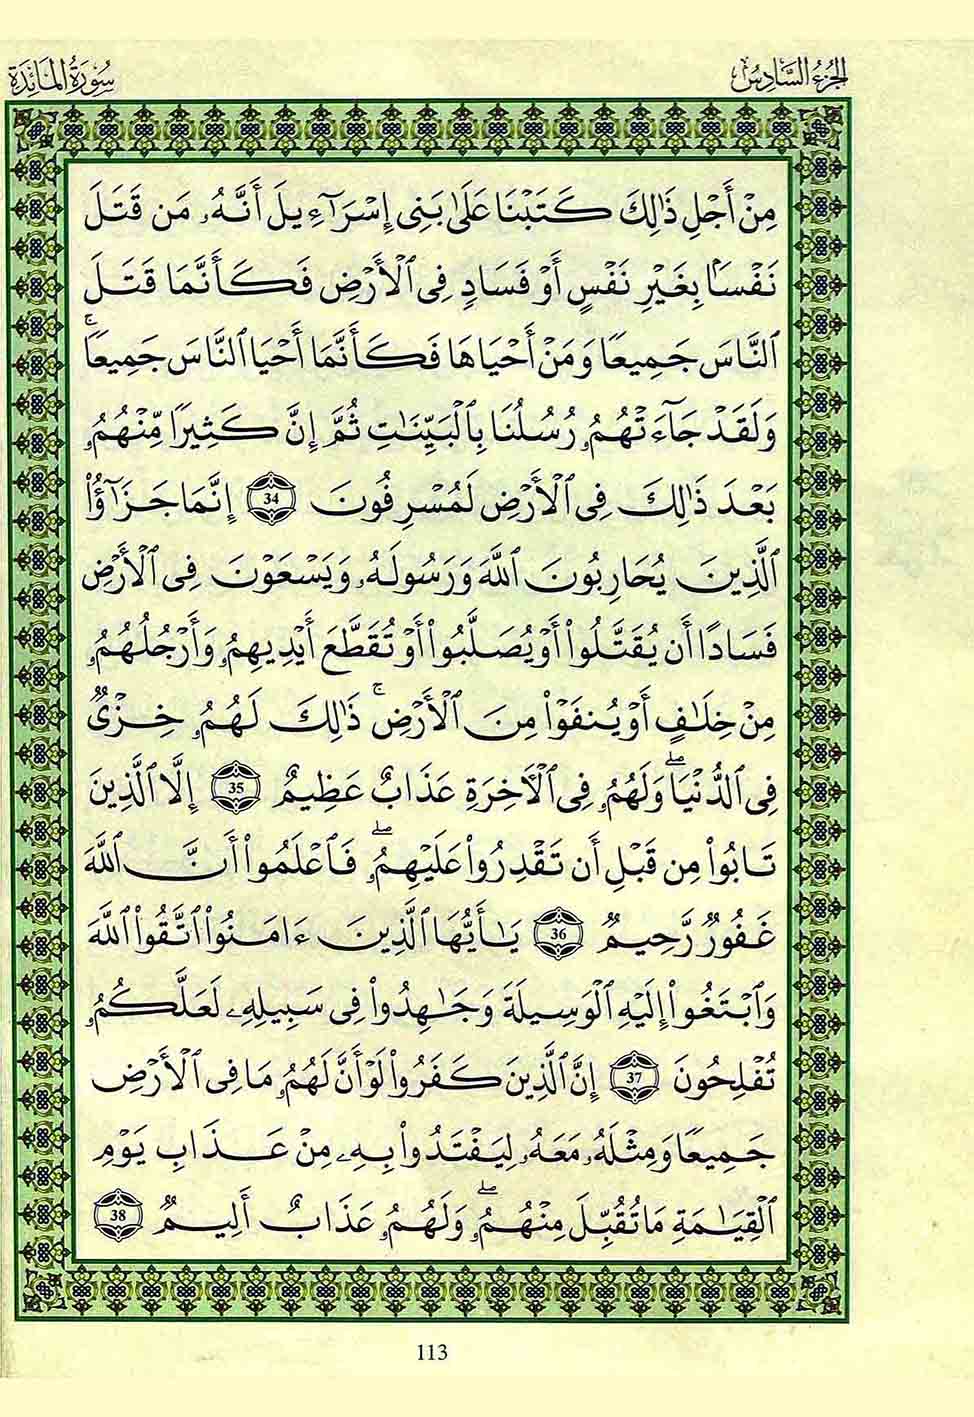 الجزء السادس
سورة المائدة
مِنْ أَجْلِ ذَٰلِكَ كَتَبْنَا عَلَىٰ بَنِى إِسْرَآءِيلَ أَنَّهُۥ مَن قَتَلَ
نَفْسَۢا بِغَيْرِ نَفْسٍ أَوْ فَسَادٍ فِى ٱلْأَرْضِ فَكَأَنَّمَا قَتَلَ
ٱلنَّاسَ جَمِيعًا وَمَنْ أَحْيَاهَا فَكَأَنَّمَا أَحْيَا ٱلنَّاسَ جَمِيعًاۚ
وَلَقَدْ جَآءَتْهُمُۥ رُسُلُنَا بِٱلْبَيِّنَٰتِ ثُمَّ إِنَّ كَثِيرًا مِّنْهُمُۥ
بَعْدَ ذَٰلِكَ فِى ٱلْأَرْضِ لَمُسْرِفُونَ 34 إِنَّمَا جَزَٰٓؤُا۟
ٱلَّذِينَ يُحَارِبُونَ ٱللَّهَ وَرَسُولَهُۥ وَيَسْعَوْنَ فِى ٱلْأَرْضِ
فَسَادًا أَن يُقَتَّلُوا۟ أَوْ يُصَلَّبُوا۟ أَوْ تُقَطَّعَ أَيْدِيهِمُۥ وَأَرْجُلُهُمُۥ
مِنْ خِلَٰفٍ أَوْ يُنفَوْا۟ مِنَ ٱلْأَرْضِۚ ذَٰلِكَ لَهُمُۥ خِزْىٌ
فِى ٱلدُّنْيَاۖ وَلَهُمُۥ فِى ٱلْأَخِرَةِ عَذَابٌ عَظِيمٌ 35 إِلَّا ٱلَّذِينَ
تَابُوا۟ مِن قَبْلِ أَن تَقْدِرُوا۟ عَلَيْهِمُۥۖ فَٱعْلَمُوا۟ أَنَّ ٱللَّهَ
غَفُورٌ رَّحِيمٌ 36 يَٰأَيُّهَا ٱلَّذِينَ ءَامَنُوا۟ ٱتَّقُوا۟ ٱللَّهَ
وَٱبْتَغُوا۟ إِلَيْهِ ٱلْوَسِيلَةَ وَجَٰهِدُوا۟ فِى سَبِيلِهِۦ لَعَلَّكُمُۥ
تُفْلِحُونَ 37 إِنَّ ٱلَّذِينَ كَفَرُوا۟ لَوْ أَنَّ لَهُمُۥ مَا فِى ٱلْأَرْضِ
جَمِيعًا وَمِثْلَهُۥ مَعَهُۥ لِيَفْتَدُوا۟ بِهِۦ مِنْ عَذَابِ يَوْمِ
ٱلْقِيَٰمَةِ مَا تُقُبِّلَ مِنْهُمُۥۖ وَلَهُمُۥ عَذَابٌ أَلِيمٌ 38
113